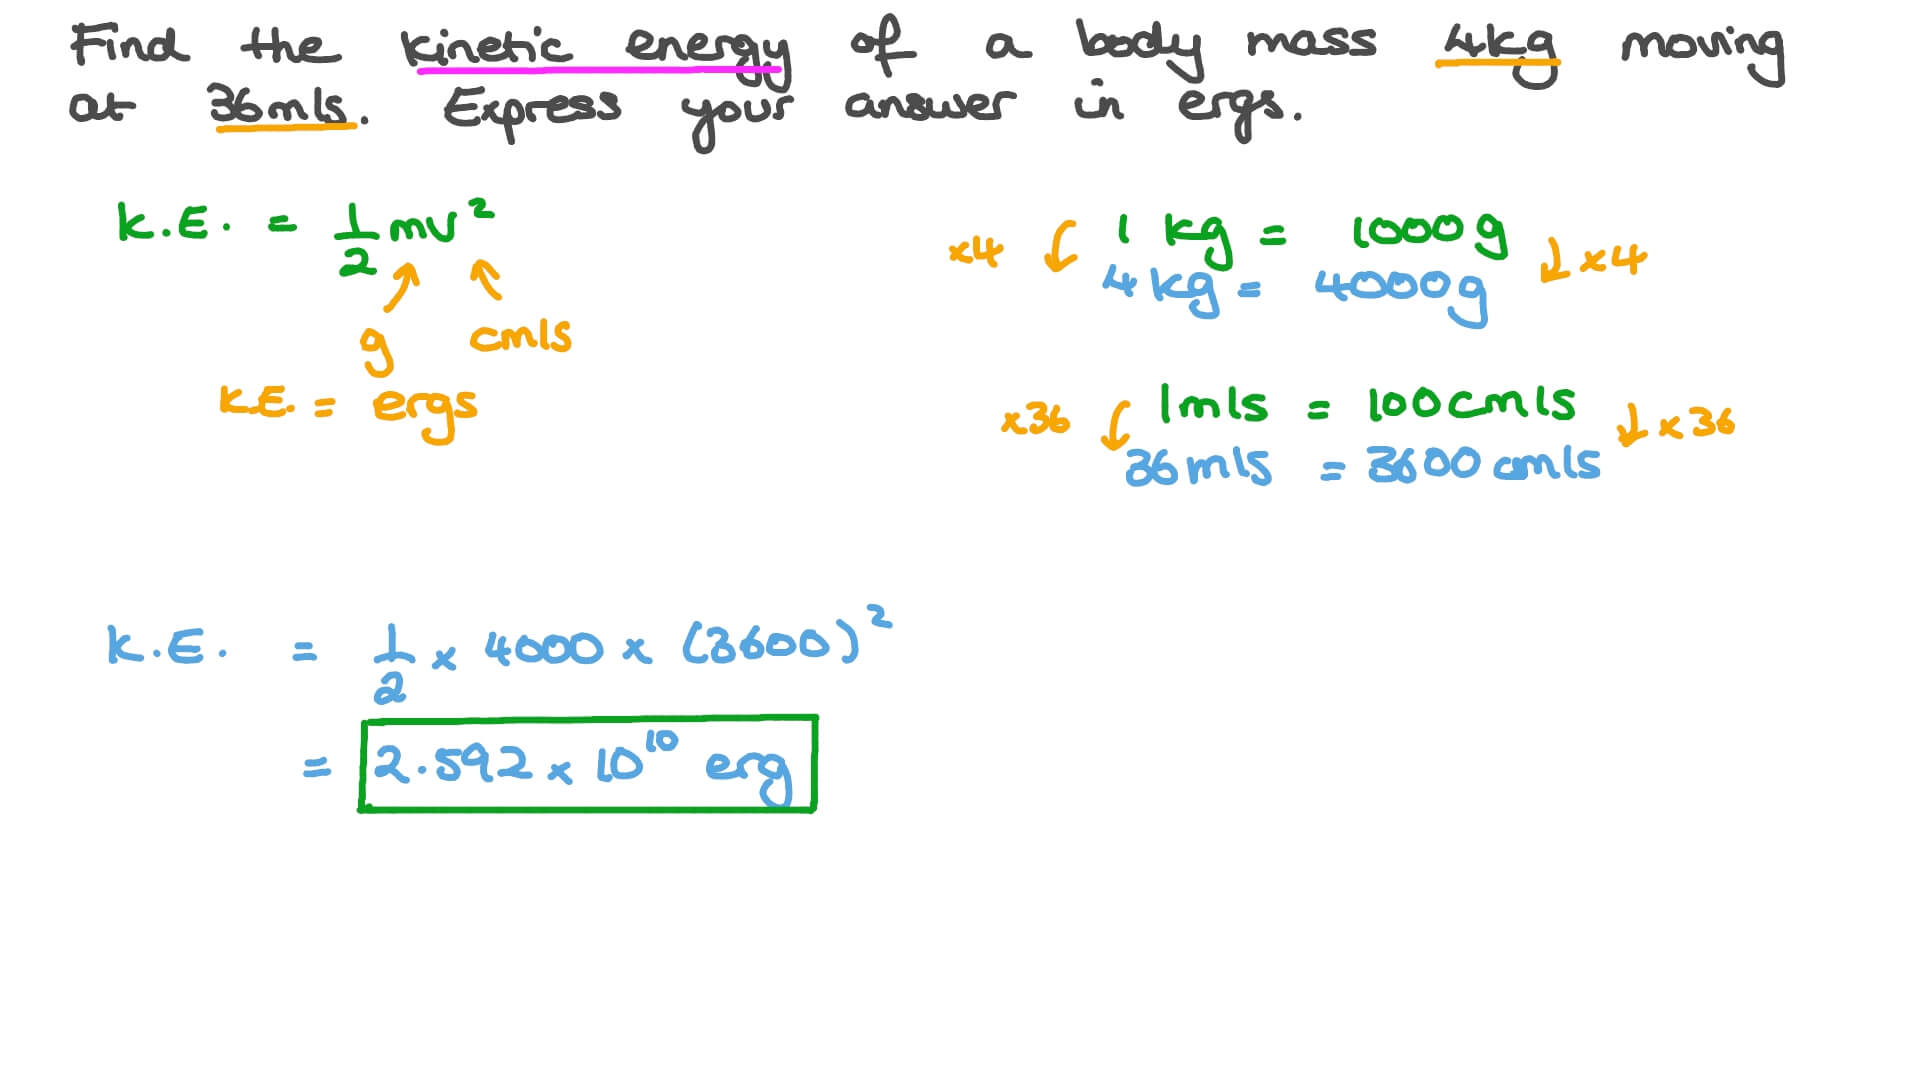 Find the kinetic energy of a body mass 4kg moving
at 36m/s. Express your answer in ergs.
K.E. = 1/2 mv²
g cm/s
K.E. = ergs
x4 1 kg = 1000g x4
4kg = 4000g
x36 1m/s = 100cm/s x36
36m/s = 3600cm/s
K.E. = 1/2 x 4000 x (3600)²
= 2.592 x 10¹⁰ erg